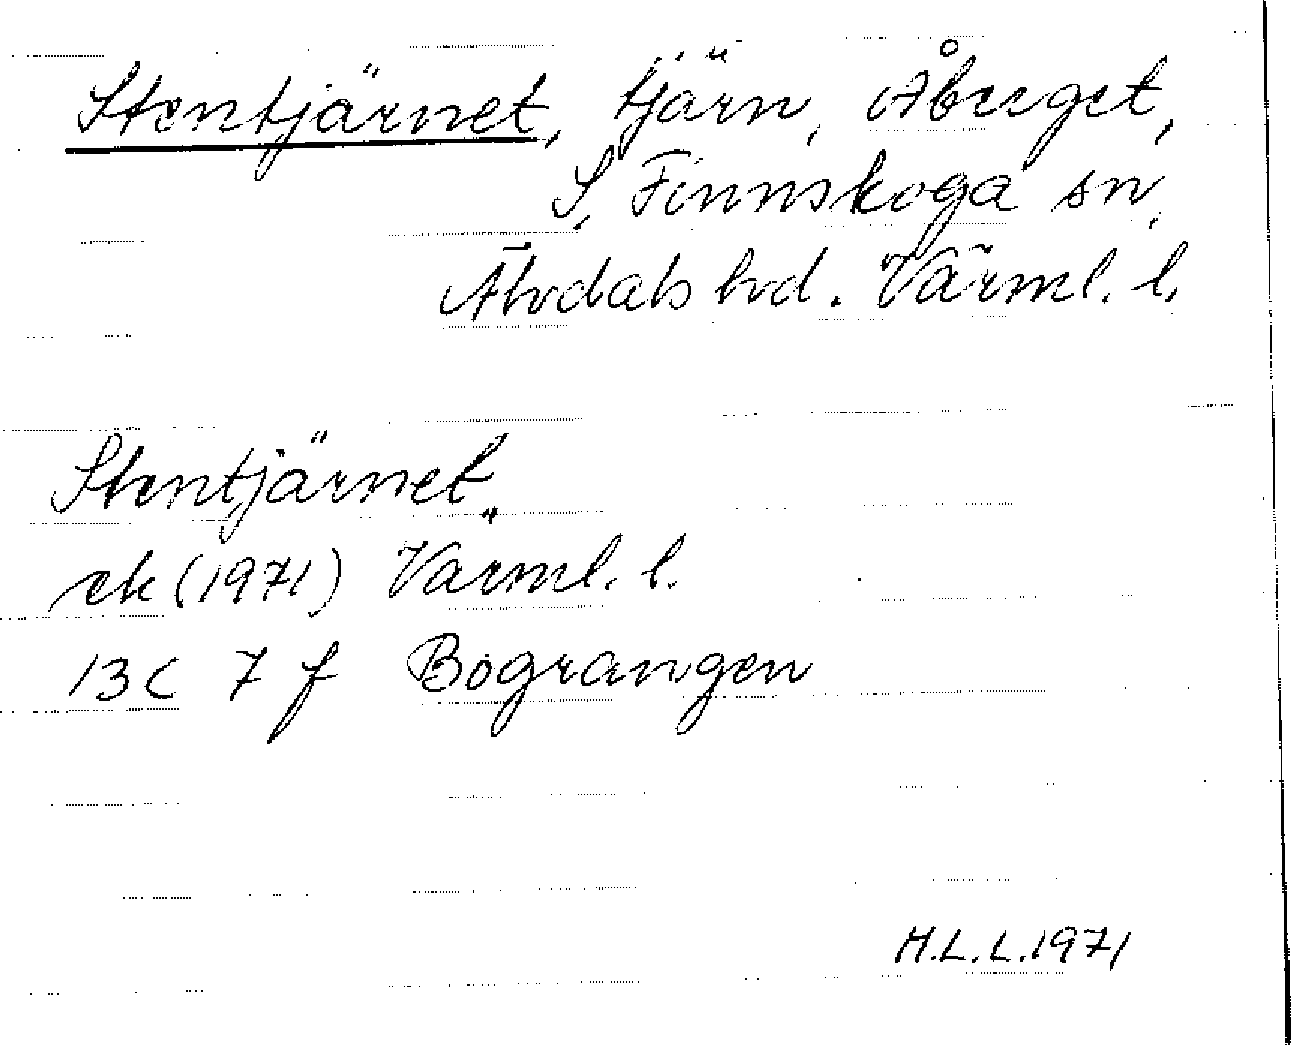 Stentjärnet, tjärn, Åberget,
S. Finnskoga sn,
Älvdals hd. Värml. l.
Stentjärnet
ek (1971) Värml. l.
13C 7f Bograngen
H.L.L. 1971